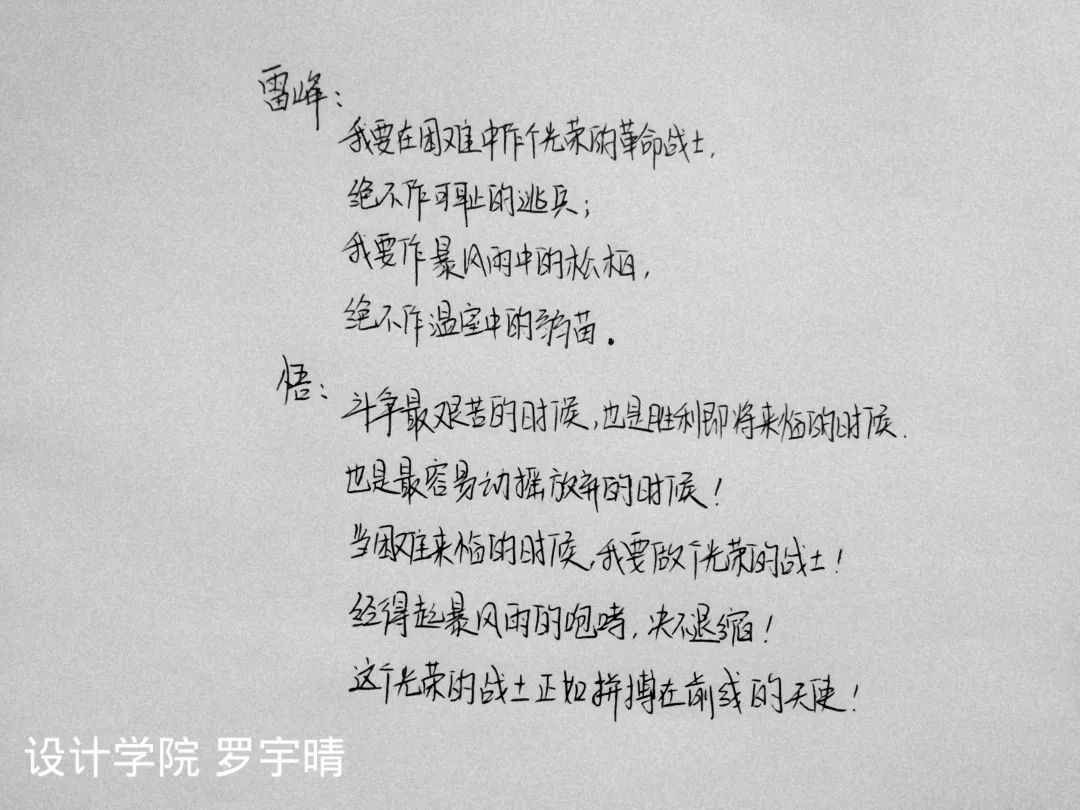 雷峰：
我要在困难中作个光荣的革命战士，
绝不作可耻的逃兵；
我要作暴风雨中的松柏，
绝不作温室中的弱苗。
悟：
斗争最艰苦的时候，也是胜利即将来临的时候.
也是最容易动摇放弃的时候！
当困难来临的时候，我要做个光荣的战士！
经得起暴风雨的咆哮，决不退缩！
这个光荣的战士正如拼搏在前线的天使！
设计学院 罗宇晴